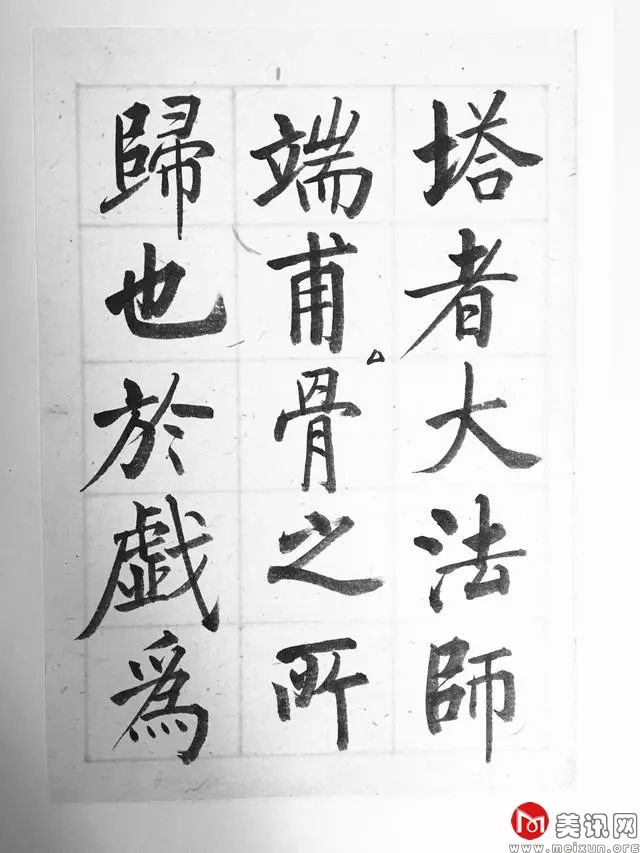 塔者大法師
端甫骨之所
歸也於戯爲
美讯网
www.meixun.org